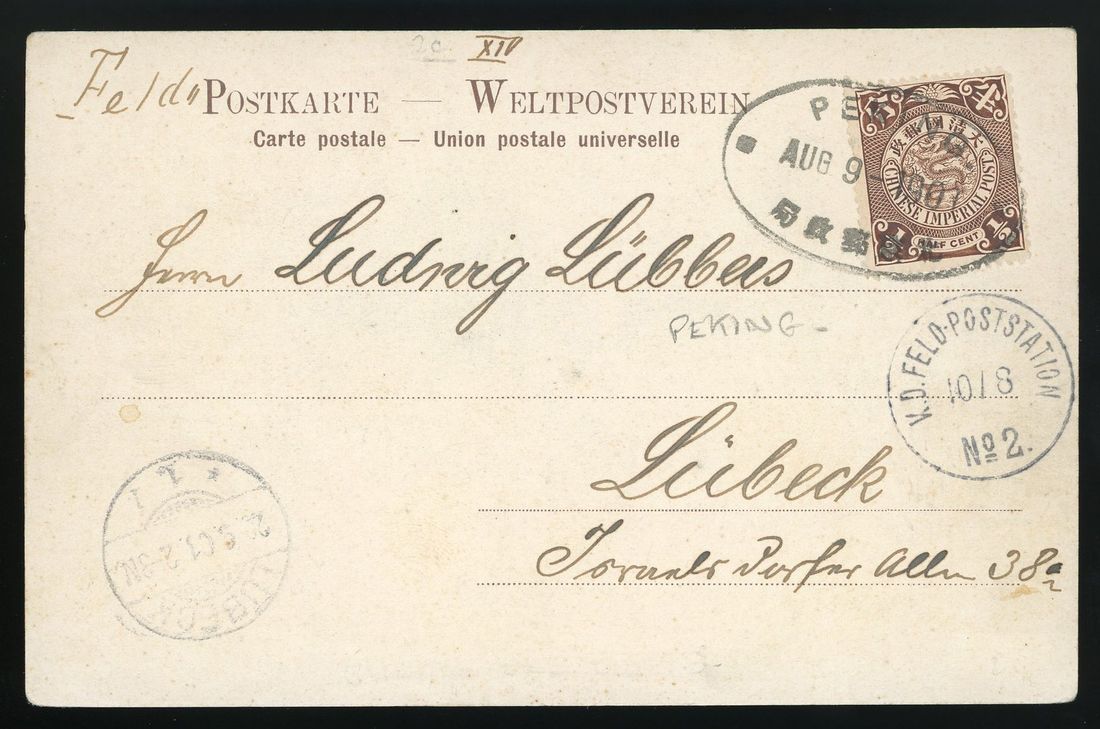 2c XIV
Feld"POSTKARTE — WELTPOSTVEREIN
Carte postale — Union postale universelle
PEKING
AUG 9 1901
局政郵京北
政郵國清大
CHINESE IMPERIAL POST
1/2 1/2
HALF CENT
Herrn Ludwig Lübbers
PEKING -
K.D. FELD-POSTSTATION
10/8
No 2.
Lübeck
Israelsdorfer Allee 38a
* 1. 1
9.01.2-3N.
LÜBECK